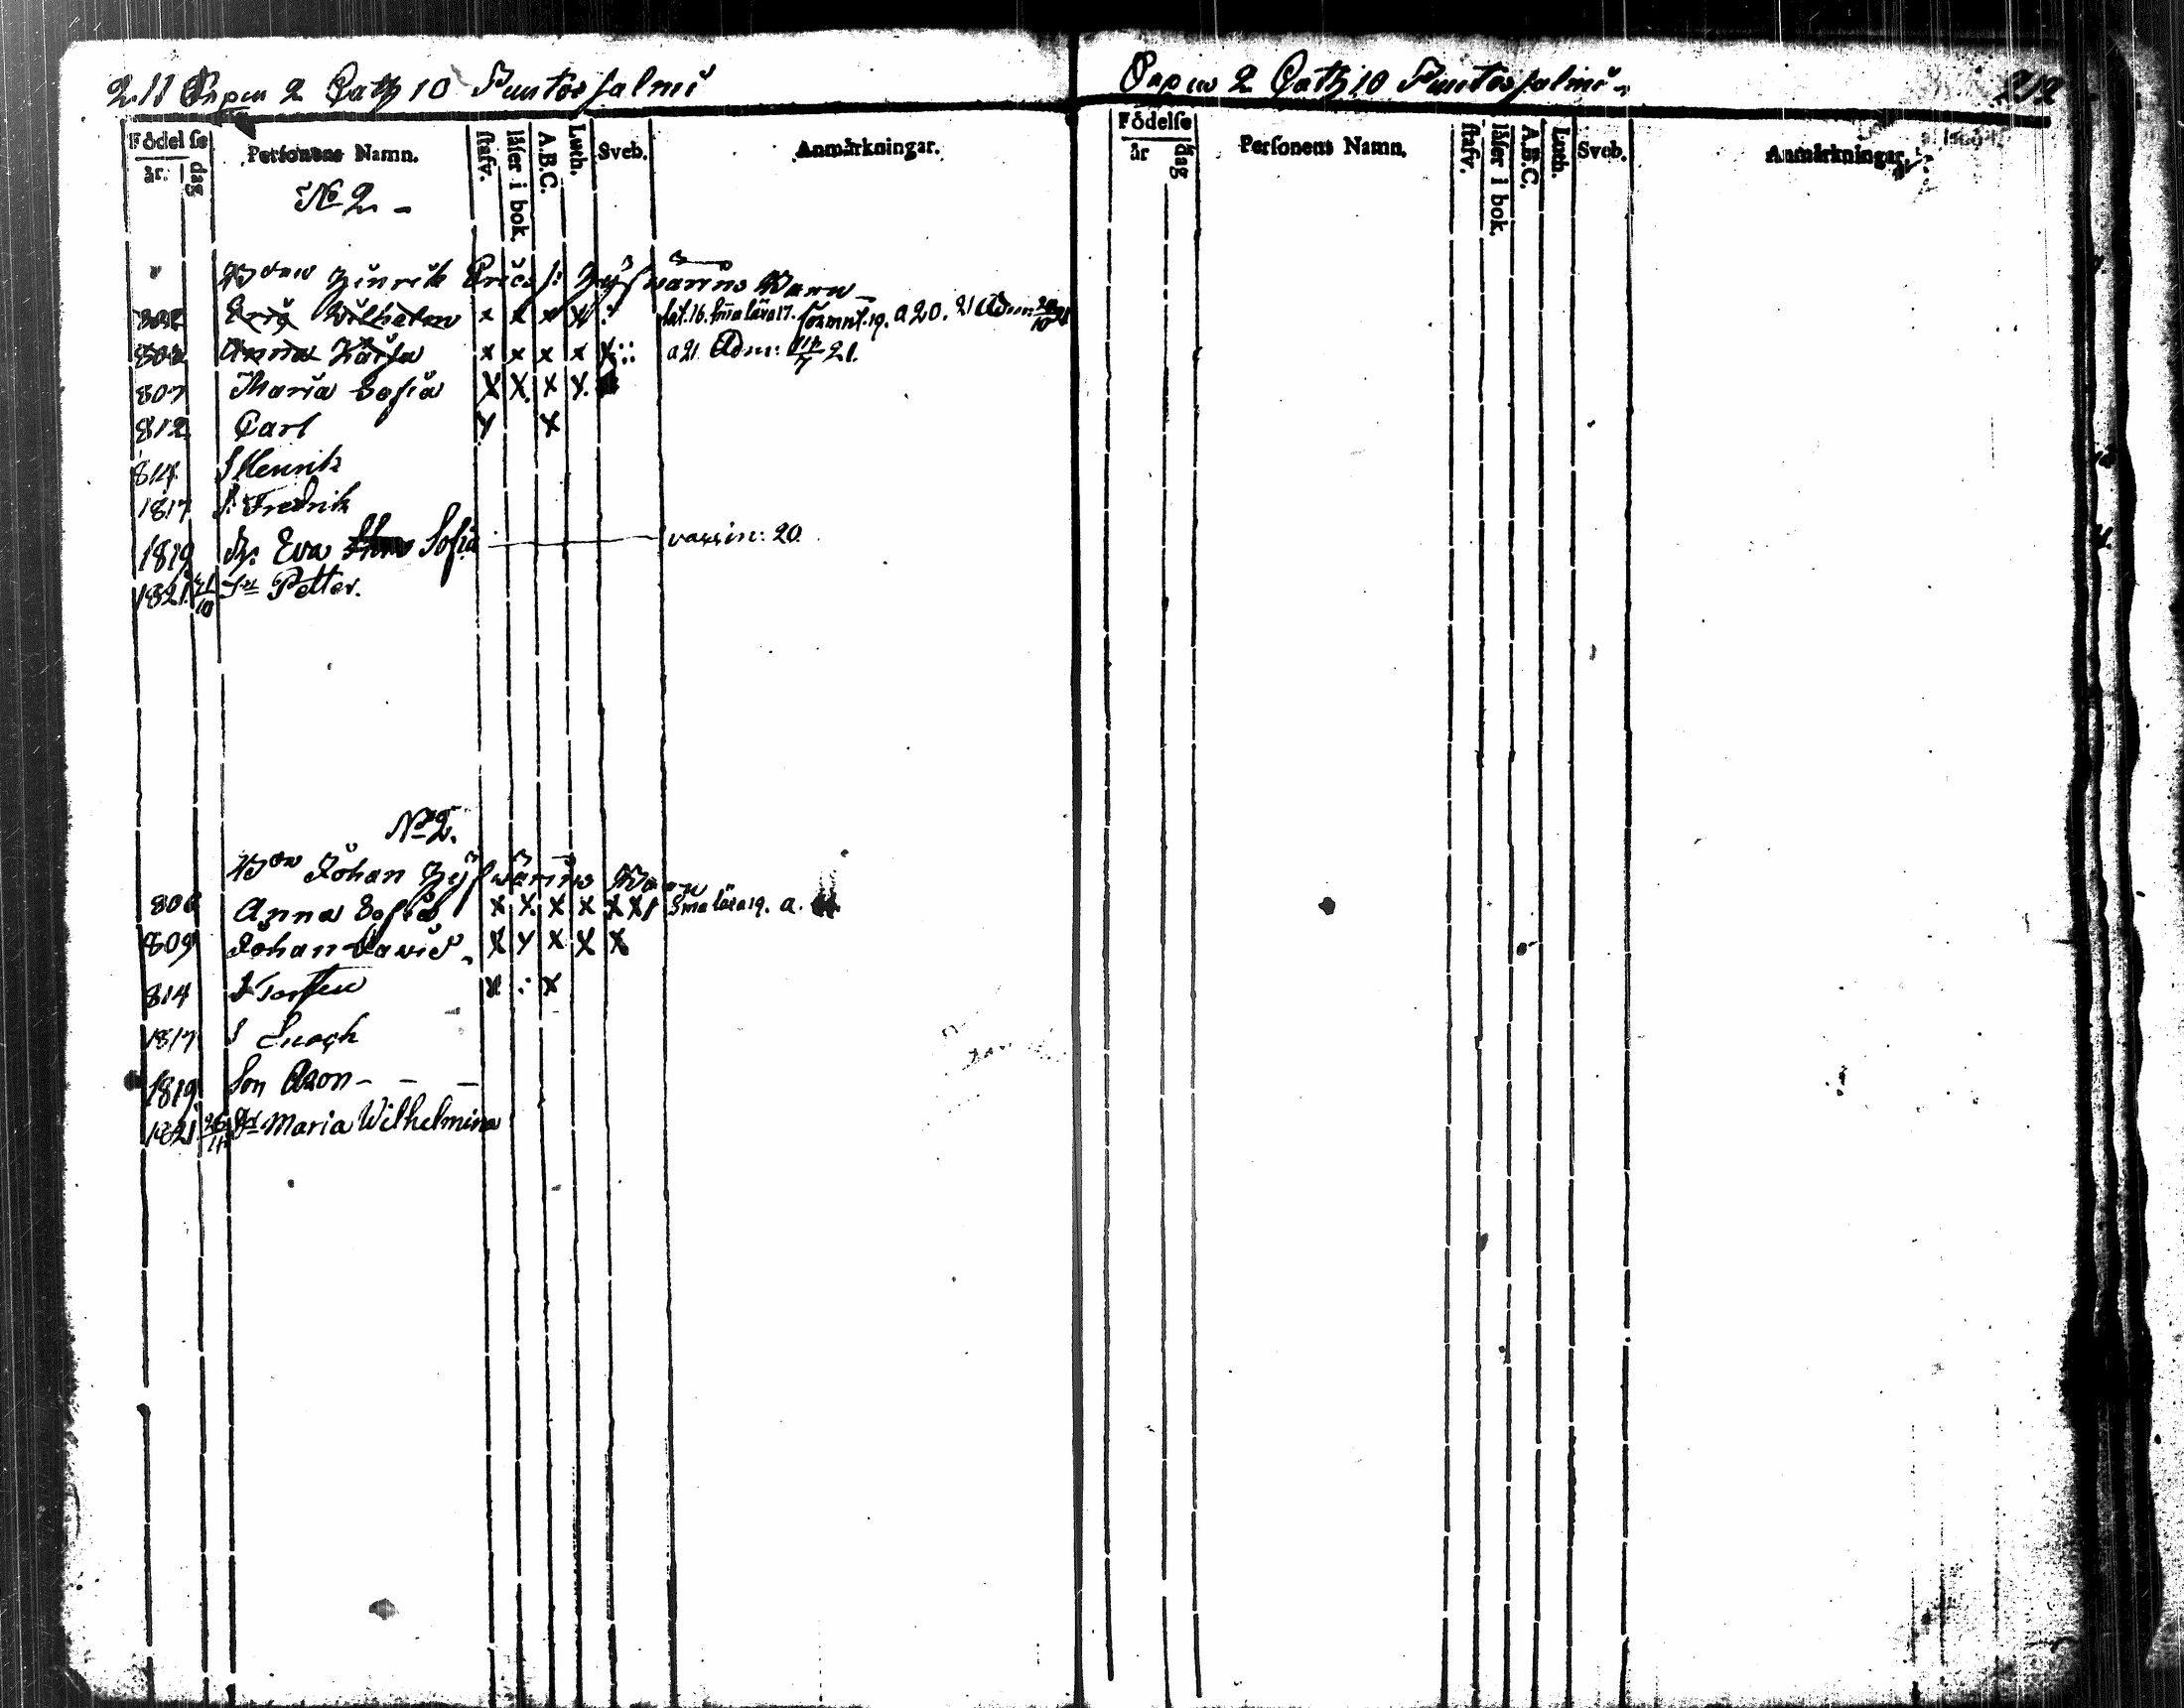 211 Capew 2 Cath 10 Puntos salmi
Födelse
år. dag
Personens Namn.
stafv.
läser i bok.
A.B.C.
Luth.
Sveb.
Anmärkningar.
No 2.
Bdew Hinrik Erics S: Hyfwärins Barn
802 Eric Wilhelm x x x x lät. 16. Sma lära 17. förmnt. 19. a 20. 21 Adm:
802 Anna Kaisa x x x x x a 21 Adm: 21.
807 Maria Sofia x x x x
812 Carl x x
814 S Henrik
1817 S. Fredrik
1819 Dr. Eva Sofia vaccin: 20.
1821 21/10 Sn Petter.
No 2.
Bdn Johan Hyfwärins Barn
806 Anna Sofia x x x x x x Sma lära 19. a.
809 Johan David x x x x x
814 S Torsten x : x
1817 S Enoch
1819 Son Aron - - -
1821 26/11 Dr Maria Wilhelmina
Capew 2 Cath 10 Puntos salmi. 212
Födelse
år dag
Personens Namn.
stafv.
läser i bok.
A.B.C.
Luth.
Sveb.
Anmärkningar.